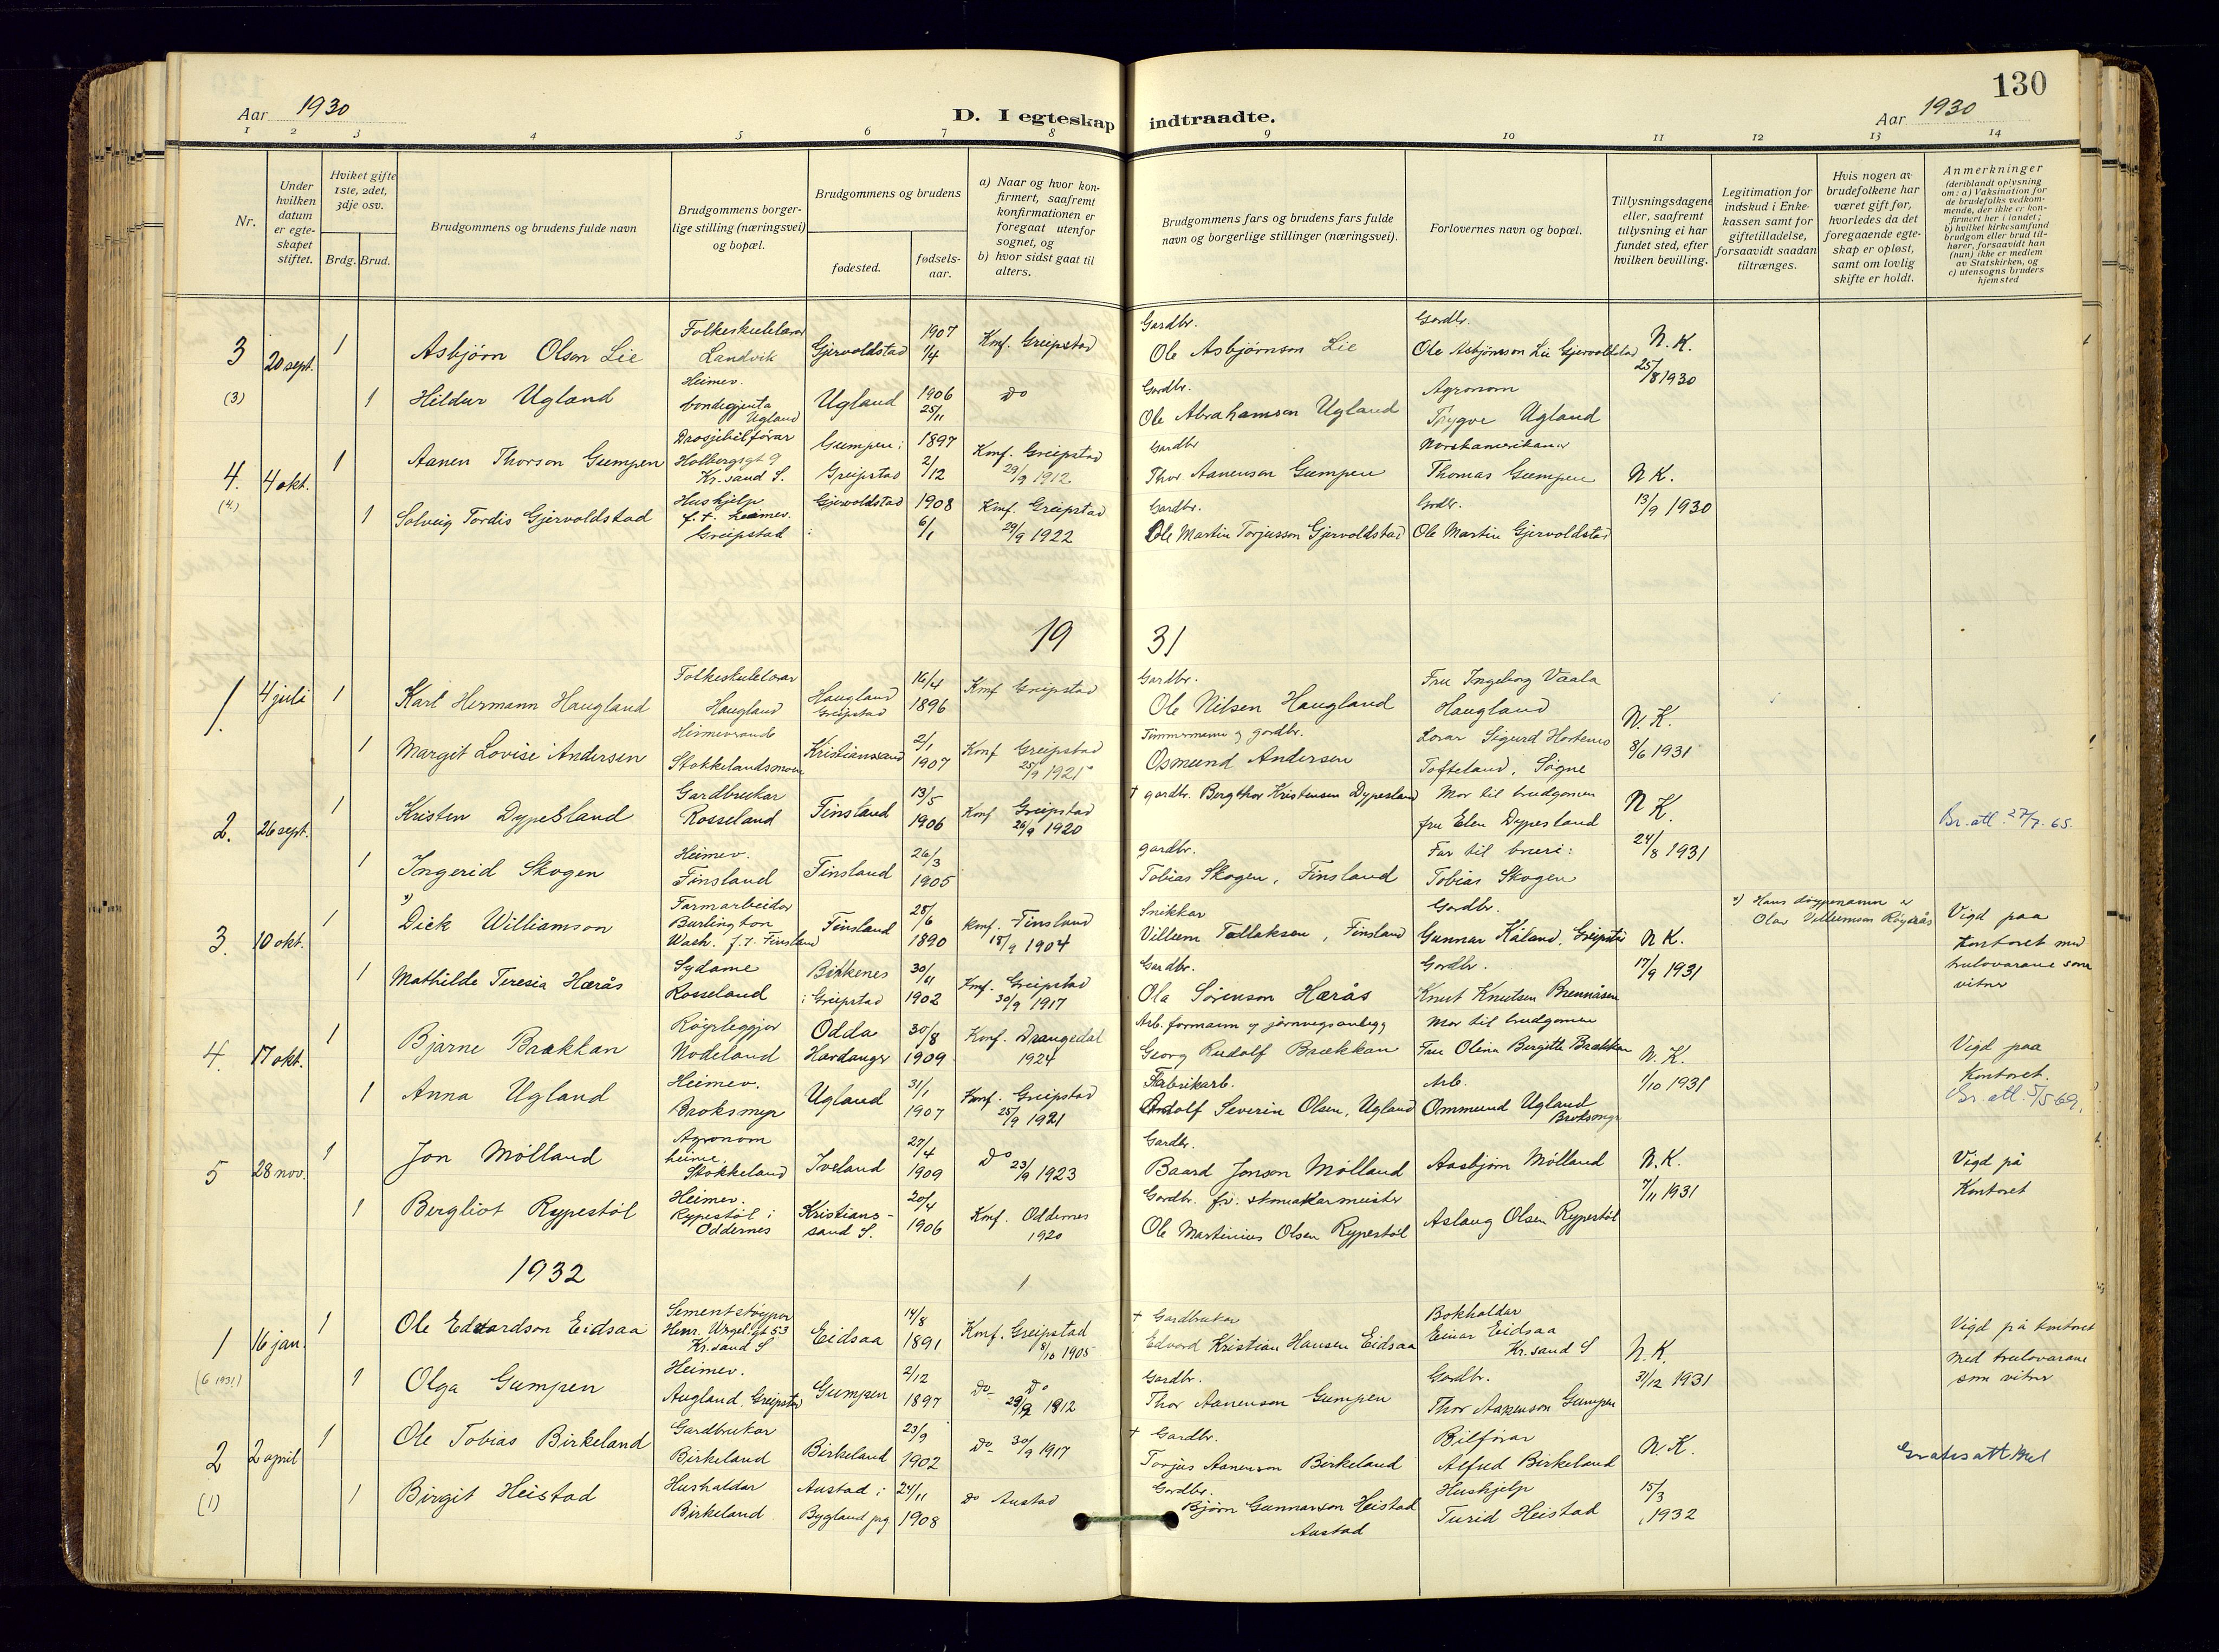 130
Aar 1930
D. I egteskap indtraadte.
Aar 1930
1 2 3 4 5 6 7 8 9 10 11 12 13 14
Nr.
Under hvilken datum er egteskapet stiftet.
Hviket gifte 1ste, 2det, 3dje osv.
Brdg. Brud.
Brudgommens og brudens fulde navn
Brudgommens borgerlige stilling (næringsvei) og bopæl.
Brudgommens og brudens
fødested.
fødselsaar.
a) Naar og hvor konfirmert, saafremt konfirmationen er foregaat utenfor sognet, og
b) hvor sidst gaat til alters.
Brudgommens fars og brudens fars fulde navn og borgerlige stillinger (næringsvei).
Forlovernes navn og bopæl.
Tillysningsdagene eller, saafremt tillysning ei har fundet sted, efter hvilken bevilling.
Legitimation for indskud i Enkekassen samt for giftetilladelse, forsaavidt saadan tiltrænges.
Hvis nogen av brudefolkene har været gift før, hvorledes da det foregaaende egteskap er opløst, samt om lovlig skifte er holdt.
Anmerkninger
(deriblandt oplysning om: a) Vaksination for de brudefolks vedkommende, der ikke er konfirmert her i landet; b) hvilket kirkesamfund brudgom eller brud tilhører, forsaavidt han (hun) ikke er medlem av Statskirken, og c) utensogns bruders hjemsted
3 20 sept. 1 Asbjørn Olsen Lie Folkeskulelærar Landvik Gjervoldstad 1907 1/4 Konf. Greipstad Gardbr. Ole Asbjørnson Lie Gardbr. Ole Asbjørnson Lie Gjervoldstad N. K. 25/8 1930
(3) 1 Hildur Ugland Heimev. bondegjenta Ugland Ugland 1906 25/11 do Gardbr. Ole Abrahamson Ugland Agronom Trygve Ugland
4. 4 okt. 1 Aanen Thorson Gumpen Drosjebilførar Holbergsgt 9 Kr.sand S. Gumpen i Greipstad 1897 2/12 Konf. Greipstad 29/9 1912 Gardbr Thor Aanenson Gumpen Norskamerikaner Thomas Gumpen N K.
(4.) 1 Solveig Tordis Gjervoldstad Hushjelp f.t. heimev. Greipstad Gjervoldstad 1908 6/1 Konf. Greipstad 29/9 1922 Gardbr. Ole Martin Torjusson Gjervoldstad Gardbr. Ole Martin Gjervoldstad 13/9 1930
1931
1. 4 juli 1 Karl Hermann Haugland Folkeskulelærar Haugland Haugland Greipstad 16/4 1896 Konf Greipstad Gardbr. Ole Nilsen Haugland Fru Ingeborg Vaala Haugland N. K.
1 Margit Lovise Andersen Heimevrande Stokkelandsmoen Kristiansand 2/1 1907 Konf Greipstad 25/9 1921 Timmermann og gardbr. Osmund Andersen Lærar Sigurd Hortenes Tofteland, Søgne 8/6 1931
2. 26 sept. 1 Kristen Dypesland Gardbrukar Rosseland Finsland 13/5 1906 Konf Greipstad 26/9 1920 † gardbr. Bergthor Kristensen Dypesland Mor til brudgomen fru Elen Dypesland N K. Br. att. 27/7. 65.
1 Ingerid Skogen Heimev. Finsland Finsland 26/3 1905 gardbr. Tobias Skogen, Finsland Far til bruri: Tobias Skogen 24/8 1931
3. 10 okt. 1 Dick Williamson Farmarbeider Burlington Wash. f.t. Finsland Finsland 28/6 1890 Konf. Finsland 18/9 1904 Snikkar Villum Tallaksen, Finsland Gardbr. Gunnar Kåland, Greipstad N K. Hans døypenamn er Olav Villumson Røyrås Vigd paa Kontoret med trulovarane som vitner
1 Mathilde Teresia Hærås Sydame Rosseland Birkenes i Greipstad 30/11 1902 Konf. Greipstad 30/9 1917 Gardbr. Ola Sørenson Hærås Gardbr. Knut Knutsen Brennåsen 17/9 1931
4. 17 okt. 1 Bjarne Brækkan Røyrleggjar Nodeland Odda Hardanger 30/8 1909 Konf. Drangedal 1924 Arb. formann v jarnvegsanlegg Georg Rudolf Brækkan Mor til brudgomen Fru Olina Bergitte Brækkan N. K. Vigd paa Kontoret.
1 Anna Ugland Heimev. Broksmyr Ugland 31/1 1907 Konf. Greipstad 25/9 1921 Fabrikarb. Andolf Severin Olsen, Ugland Arb. Ommund Ugland Broksmyr 1/10 1931 Br. att. 5/5 69.
5 28 nov. 1 Jon Mølland Agronom heime. Stokkeland Iveland 27/4 1909 do 23/9 1923 Gardbr. Baard Jonson Mølland Aasbjørn Mølland N.K. Vigd på Kontoret
1 Bergliot Rypestøl Heimev. Rypestøl i Oddernes Kristianssand S. 20/4 1906 Konf. Oddernes 1920 Gardbr. fv. skomakarmeister Ole Martinius Olsen Rypestøl Aslaug Olsen Rypestøl 7/11 1931
1932
1 16 jan. 1 Ole Edvardson Eidsaa Sementstøypar Henr. Wergel.gt 53 Kr.sand S Eidsaa 14/8 1891 Konf. Greipstad 8/10 1905 † Gardbrukar Edvard Kristian Hansen Eidsaa Bokhaldar Einar Eidsaa Kr.sand S N. K. Vigd på kontoret med trulovarane som vitner
(6 1931) 1 Olga Gumpen Heimev. Augland, Greipstad Gumpen 2/12 1897 do do 29/9 1912 Gardbr. Thor Aanenson Gumpen Gardbr. Thor Aanenson Gumpen 31/12 1931
2 2 april 1 Ole Tobias Birkeland Gardbrukar Birkeland Birkeland 23/9 1902 do 30/9 1917 † Gardbr. Torjus Aanenson Birkeland Bilførar Alfred Birkeland N. K.
(1) 1 Birgit Heistad Hushaldar Birkeland Austad i Bygland prg 24/11 1908 do Austad Gardbr. Bjørn Gunnarson Heistad Austad Hushjelp Turid Heistad 15/3 1932